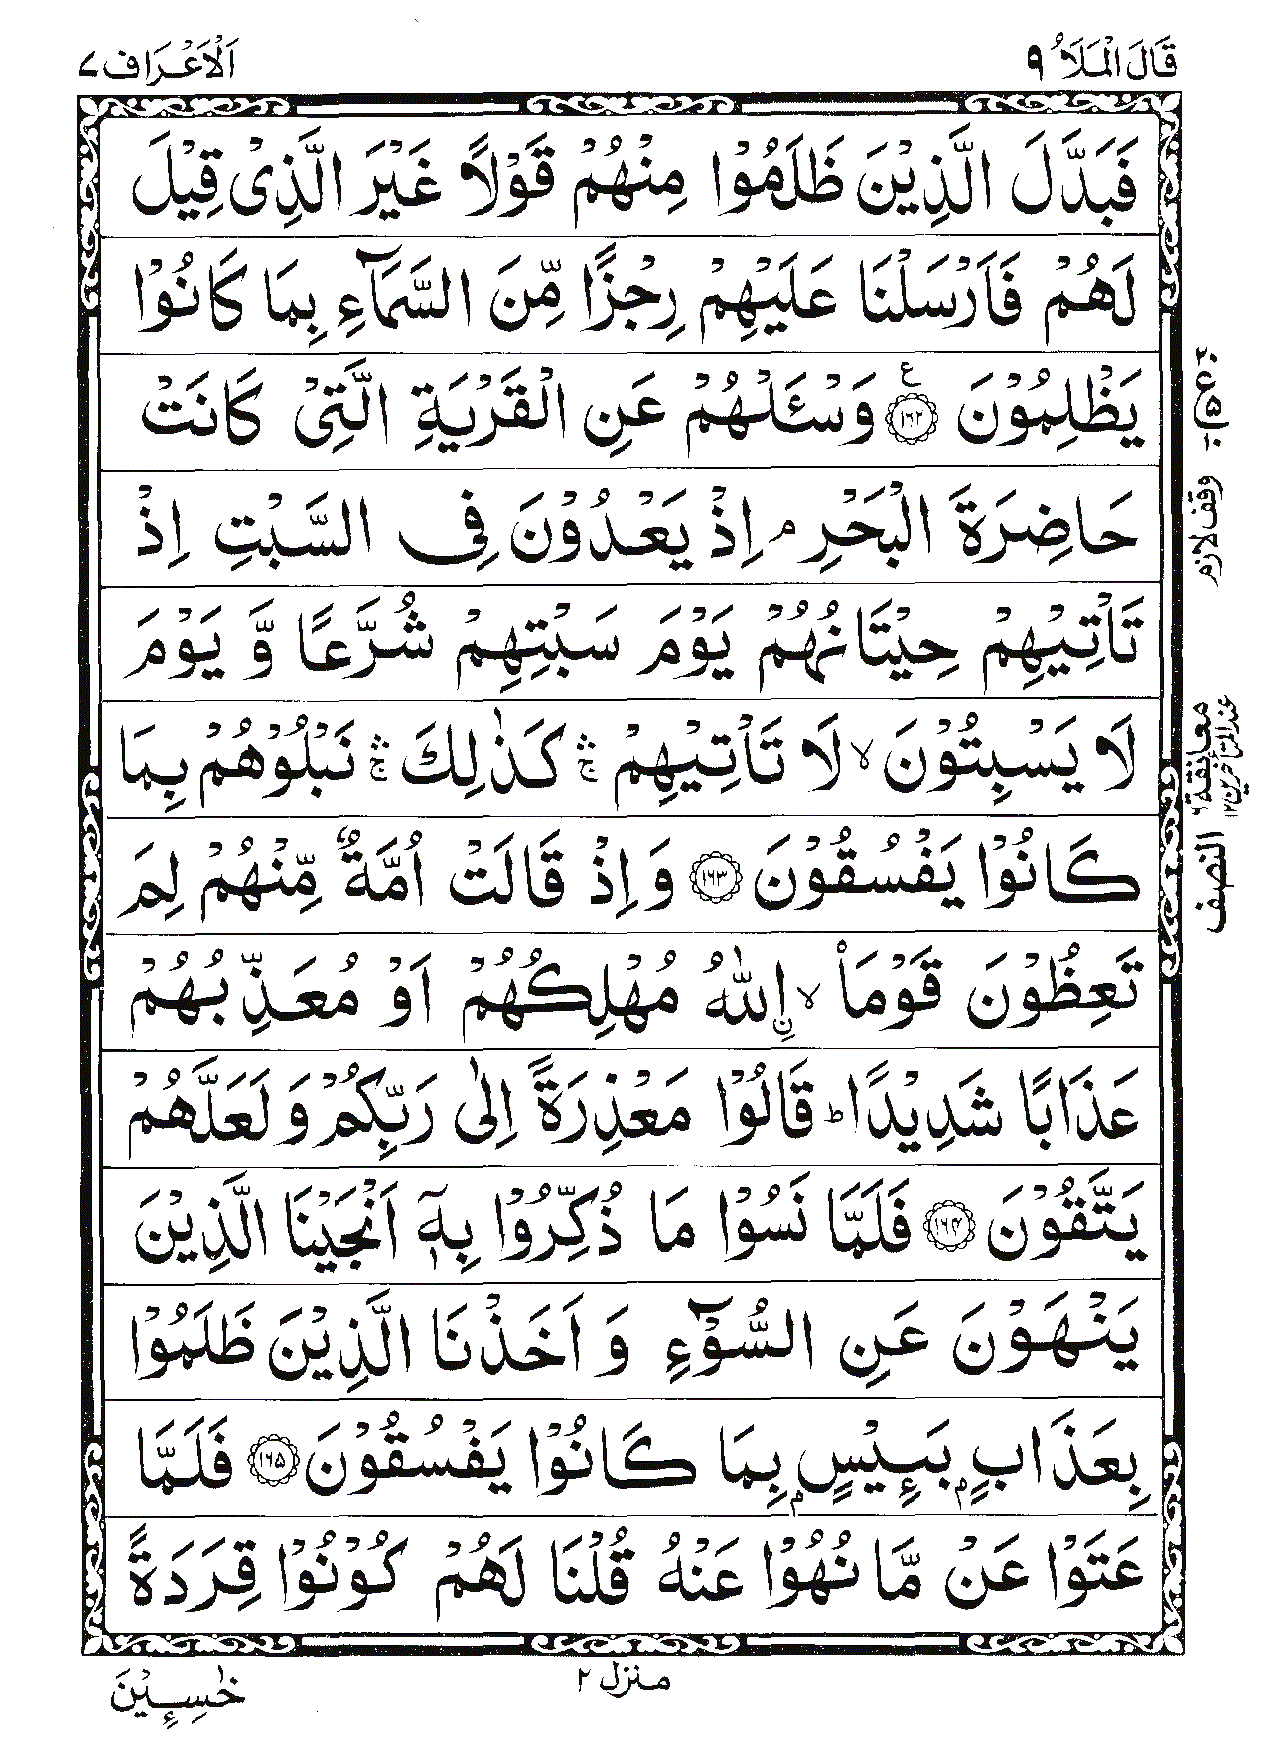 قَالَ الْمَلَاُ ٩
اَلْاَعْرَاف ٧
فَبَدَّلَ الَّذِيْنَ ظَلَمُوْا مِنْهُمْ قَوْلًا غَيْرَ الَّذِىْ قِيْلَ
لَهُمْ فَاَرْسَلْنَا عَلَيْهِمْ رِجْزًا مِّنَ السَّمَآءِ بِمَا كَانُوْا
يَظْلِمُوْنَ ۝١٦٢ ع وَسْـَٔلْهُمْ عَنِ الْقَرْيَةِ الَّتِىْ كَانَتْ
حَاضِرَةَ الْبَحْرِ ۘ اِذْ يَعْدُوْنَ فِى السَّبْتِ اِذْ
تَاْتِيْهِمْ حِيْتَانُهُمْ يَوْمَ سَبْتِهِمْ شُرَّعًا وَّ يَوْمَ
لَا يَسْبِتُوْنَ ۙ لَا تَاْتِيْهِمْ ۛۚ كَذٰلِكَ ۛۚ نَبْلُوْهُمْ بِمَا
كَانُوْا يَفْسُقُوْنَ ۝١٦٣ وَ اِذْ قَالَتْ اُمَّةٌ مِّنْهُمْ لِمَ
تَعِظُوْنَ قَوْمَا ۙ ِۨاللّٰهُ مُهْلِكُهُمْ اَوْ مُعَذِّبُهُمْ
عَذَابًا شَدِيْدًا ؕ قَالُوْا مَعْذِرَةً اِلٰى رَبِّكُمْ وَ لَعَلَّهُمْ
يَتَّقُوْنَ ۝١٦٤ فَلَمَّا نَسُوْا مَا ذُكِّرُوْا بِهٖۤ اَنْجَيْنَا الَّذِيْنَ
يَنْهَوْنَ عَنِ السُّوْٓءِ وَ اَخَذْنَا الَّذِيْنَ ظَلَمُوْا
بِعَذَابٍۭ بَـِٔيْسٍۭ بِمَا كَانُوْا يَفْسُقُوْنَ ۝١٦٥ فَلَمَّا
عَتَوْا عَنْ مَّا نُهُوْا عَنْهُ قُلْنَا لَهُمْ كُوْنُوْا قِرَدَةً
منزل ٢
خٰسِـِٕيْنَ
٢٠ ع ٥ ١٠
وقف لازم
معانقة ٦
عند المتأخرين ١٢
النصف